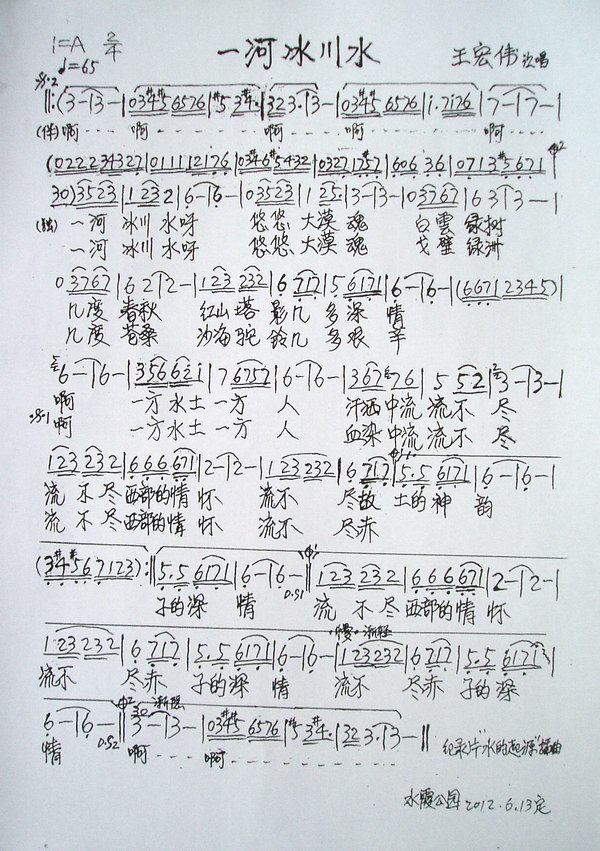 1=A 2/4
♩=65
一河冰川水
王宏伟演唱
‖:(3-|3-|03#4#5 6576|#5 3#4.|323.|3-|03#4#5 6576|i.7i76|7-|7-|
(伴)啊 啊 啊 啊 啊
(02224327|01111276|03#46#5432|0327|7#57|606 36|0713#5671|
30)3523|1232|6-|6-|03523|125|3-|3-|03767|63|3-|
(独)一河 冰川 水呀 悠悠 大漠 魂 白雲 绿树
一河 冰川 水呀 悠悠 大漠 魂 戈壁 绿洲
03767|62|2-|123 232|6 717|5 6171|6-|6-|(6671 2345)|
几度 春秋 红山 塔 影几 多 深 情
几度 苍桑 沙海 驼 铃几 多 艰 辛
6-|6-|3566 2i|7 6757|6-|6-|367 76|5 52|3-|3-|
啊 一方 水土 一方 人 汗洒 中流 流不 尽
啊 一方 水土 一方 人 血染 中流 流不 尽
123 232|666 671|2-|2-|123 232|6 717|5.5 6171|6-|6-|
流 不 尽 西部的情 怀 流不 尽故 土的 神 韵
流 不 尽 西部的情 怀 流不 尽赤
(3#4#56 7123):‖5.5 6171|6-|6-‖123 232|666 671|2-|2-|
D.S1
子的深 情 流 不 尽 西部的情 怀
慢·渐轻
123 232|6 717|5.5 6171|6-|6-|123232|6 717|5.5 6171|
流不 尽赤 子的深 情 流不 尽赤 子的深
6-|6-|3-|3-|03#4#5 6576|#5 3#4.|323.|3-‖
情 D.S2 啊 啊
纪录片"水的起源"插曲
水霞公园2012.6.13定